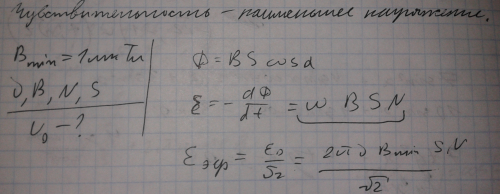 Чувствительность – наименьшее напряжение.
B min = 1 мкТл
Φ = BS cosα
ν, B, N, S
ℰ = - dΦ/dt = ω B S N
U₀ - ?
ℰ эф = ℰ₀/√2 = 2π ν B min S N / √2